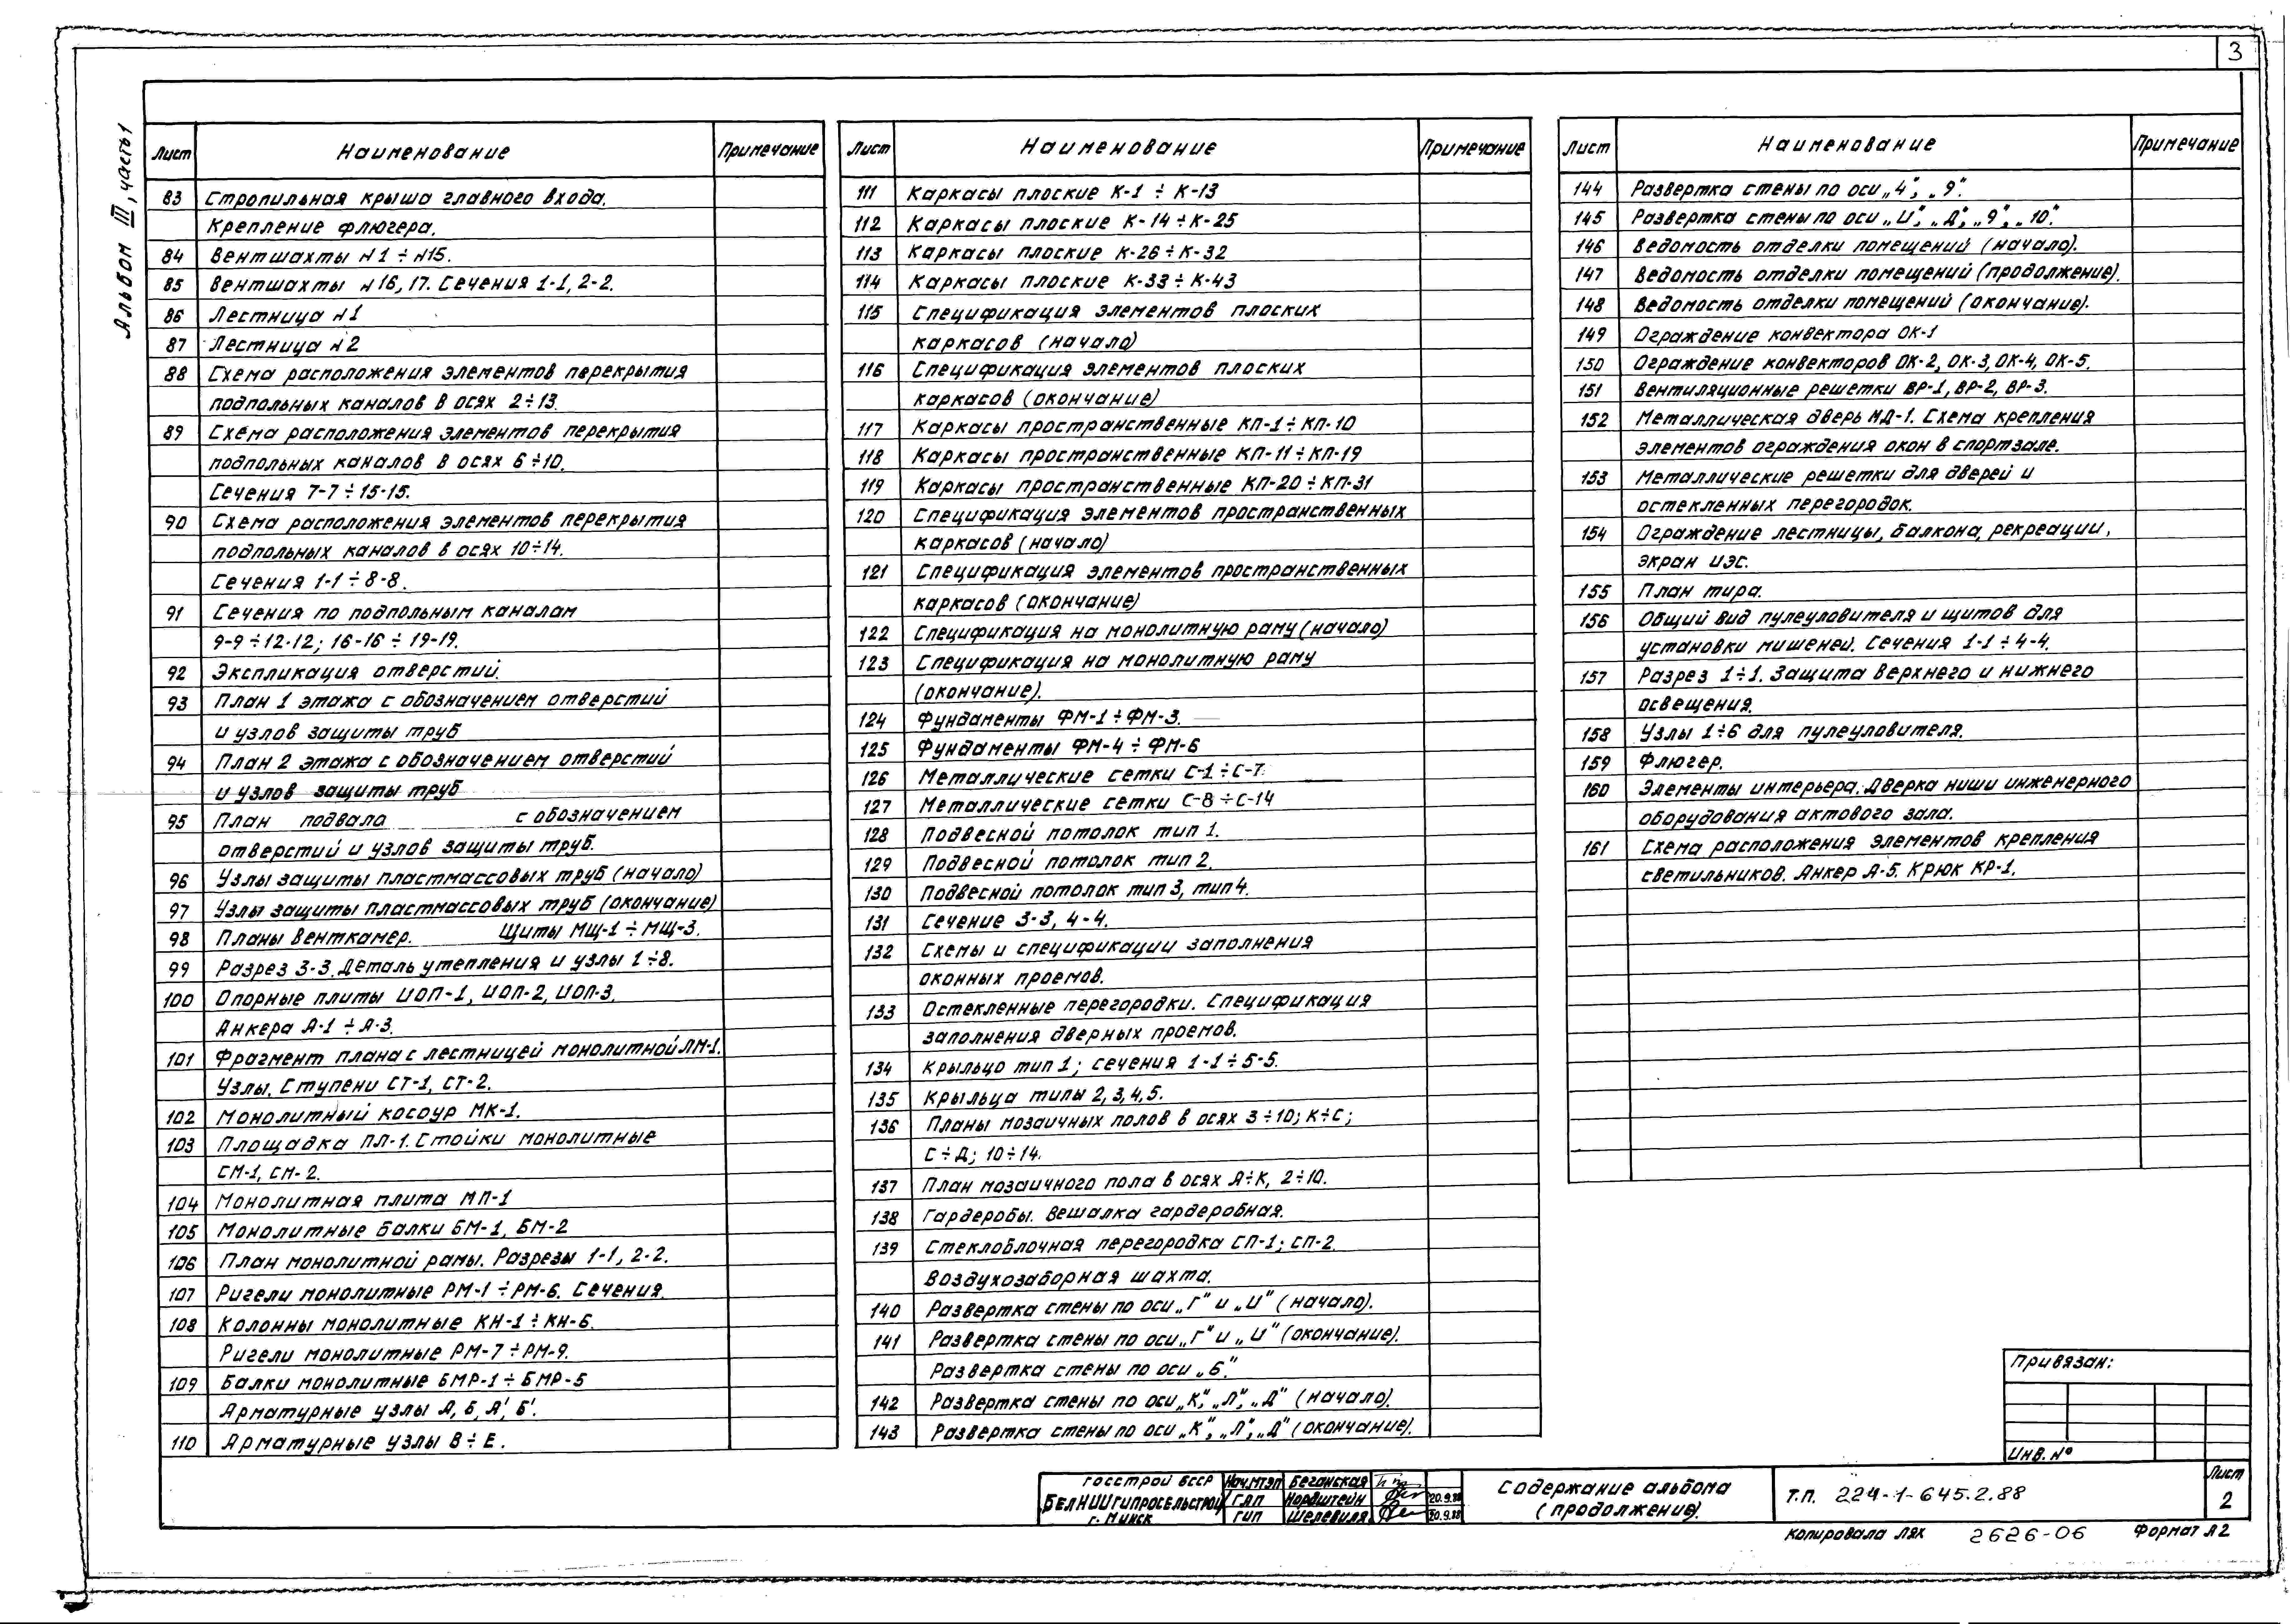 3
Альбом III, часть 1
Лист Наименование Примечание
83 Стропильная крыша главного входа.
Крепление флюгера.
84 Вентшахты н1 ÷ н15.
85 Вентшахты н16, 17. Сечения 1-1, 2-2.
86 Лестница н1
87 Лестница н2
88 Схема расположения элементов перекрытия
подпольных каналов в осях 2÷13.
89 Схема расположения элементов перекрытия
подпольных каналов в осях 6÷10.
Сечения 7-7 ÷ 15-15.
90 Схема расположения элементов перекрытия
подпольных каналов в осях 10÷14.
Сечения 1-1 ÷ 8-8.
91 Сечения по подпольным каналам
9-9 ÷ 12-12; 16-16 ÷ 19-19.
92 Экспликация отверстий.
93 План 1 этажа с обозначением отверстий
и узлов защиты труб
94 План 2 этажа с обозначением отверстий
и узлов защиты труб
95 План подвала с обозначением
отверстий и узлов защиты труб.
96 Узлы защиты пластмассовых труб (начало)
97 Узлы защиты пластмассовых труб (окончание)
98 Планы венткамер. Щиты МЩ-1 ÷ МЩ-3.
99 Разрез 3-3. Деталь утепления и узлы 1÷8.
100 Опорные плиты ИОП-1, ИОП-2, ИОП-3.
Анкера А-1 ÷ А-3.
101 Фрагмент плана с лестницей монолитной ЛМ-1.
Узлы. Ступени СТ-1, СТ-2.
102 Монолитный косоур МК-1.
103 Площадка ПЛ-1. Стойки монолитные
СМ-1, СМ-2.
104 Монолитная плита МП-1
105 Монолитные балки БМ-1, БМ-2
106 План монолитной рамы. Разрезы 1-1, 2-2.
107 Ригели монолитные РМ-1 ÷ РМ-6. Сечения.
108 Колонны монолитные КН-1 ÷ КН-6.
Ригели монолитные РМ-7 ÷ РМ-9.
109 Балки монолитные БМР-1 ÷ БМР-5
Арматурные узлы А, Б, А', Б'.
110 Арматурные узлы В ÷ Е.
Лист Наименование Примечание
111 Каркасы плоские К-1 ÷ К-13
112 Каркасы плоские К-14 ÷ К-25
113 Каркасы плоские К-26 ÷ К-32
114 Каркасы плоские К-33 ÷ К-43
115 Спецификация элементов плоских
каркасов (начало)
116 Спецификация элементов плоских
каркасов (окончание)
117 Каркасы пространственные КП-1 ÷ КП-10
118 Каркасы пространственные КП-11 ÷ КП-19
119 Каркасы пространственные КП-20 ÷ КП-31
120 Спецификация элементов пространственных
каркасов (начало)
121 Спецификация элементов пространственных
каркасов (окончание)
122 Спецификация на монолитную раму (начало)
123 Спецификация на монолитную раму
(окончание).
124 Фундаменты ФМ-1 ÷ ФМ-3.
125 Фундаменты ФМ-4 ÷ ФМ-6
126 Металлические сетки С-1 ÷ С-7.
127 Металлические сетки С-8 ÷ С-14
128 Подвесной потолок тип 1.
129 Подвесной потолок тип 2.
130 Подвесной потолок тип 3, тип 4.
131 Сечение 3-3, 4-4.
132 Схемы и спецификации заполнения
оконных проемов.
133 Остекленные перегородки. Спецификация
заполнения дверных проемов.
134 Крыльцо тип 1; сечения 1-1 ÷ 5-5.
135 Крыльца типы 2, 3, 4, 5.
136 Планы мозаичных полов в осях 3÷10; К÷С;
С ÷ Д; 10÷14.
137 План мозаичного пола в осях А÷К, 2÷10.
138 Гардеробы. Вешалка гардеробная.
139 Стеклоблочная перегородка СП-1; СП-2.
Воздухозаборная шахта.
140 Развертка стены по оси „Г" и „И" (начало).
141 Развертка стены по оси „Г" и „И" (окончание).
Развертка стены по оси „Б".
142 Развертка стены по оси „К", „Л", „Д" (начало).
143 Развертка стены по оси „К", „Л", „Д" (окончание).
Лист Наименование Примечание
144 Развертка стены по оси „4", „9".
145 Развертка стены по оси „И", „Д", „9", „10".
146 Ведомость отделки помещений (начало).
147 Ведомость отделки помещений (продолжение).
148 Ведомость отделки помещений (окончание).
149 Ограждение конвектора ОК-1
150 Ограждение конвекторов ОК-2, ОК-3, ОК-4, ОК-5.
151 Вентиляционные решетки ВР-1, ВР-2, ВР-3.
152 Металлическая дверь МД-1. Схема крепления
элементов ограждения окон в спортзале.
153 Металлические решетки для дверей и
остекленных перегородок.
154 Ограждение лестницы, балкона, рекреации,
экран ИЭС.
155 План тира.
156 Общий вид пулеуловителя и щитов для
установки мишеней. Сечения 1-1 ÷ 4-4.
157 Разрез 1÷1. Защита верхнего и нижнего
освещения.
158 Узлы 1÷6 для пулеуловителя.
159 Флюгер.
160 Элементы интерьера. Дверка ниши инженерного
оборудования актового зала.
161 Схема расположения элементов крепления
светильников. Анкер А-5. Крюк КР-1.
Привязан:
Инв. №
Госстрой БССР
БелНИИгипросельстрой
г. Минск
Нач.МТЭП Беганская
ГАП Нордштейн 20.9.88
ГИП Шелевиля 20.9.88
Содержание альбома
(продолжение).
Т.П. 224-1-645.2.88
Лист
2
Копировала Лях 2626-06 Формат А2